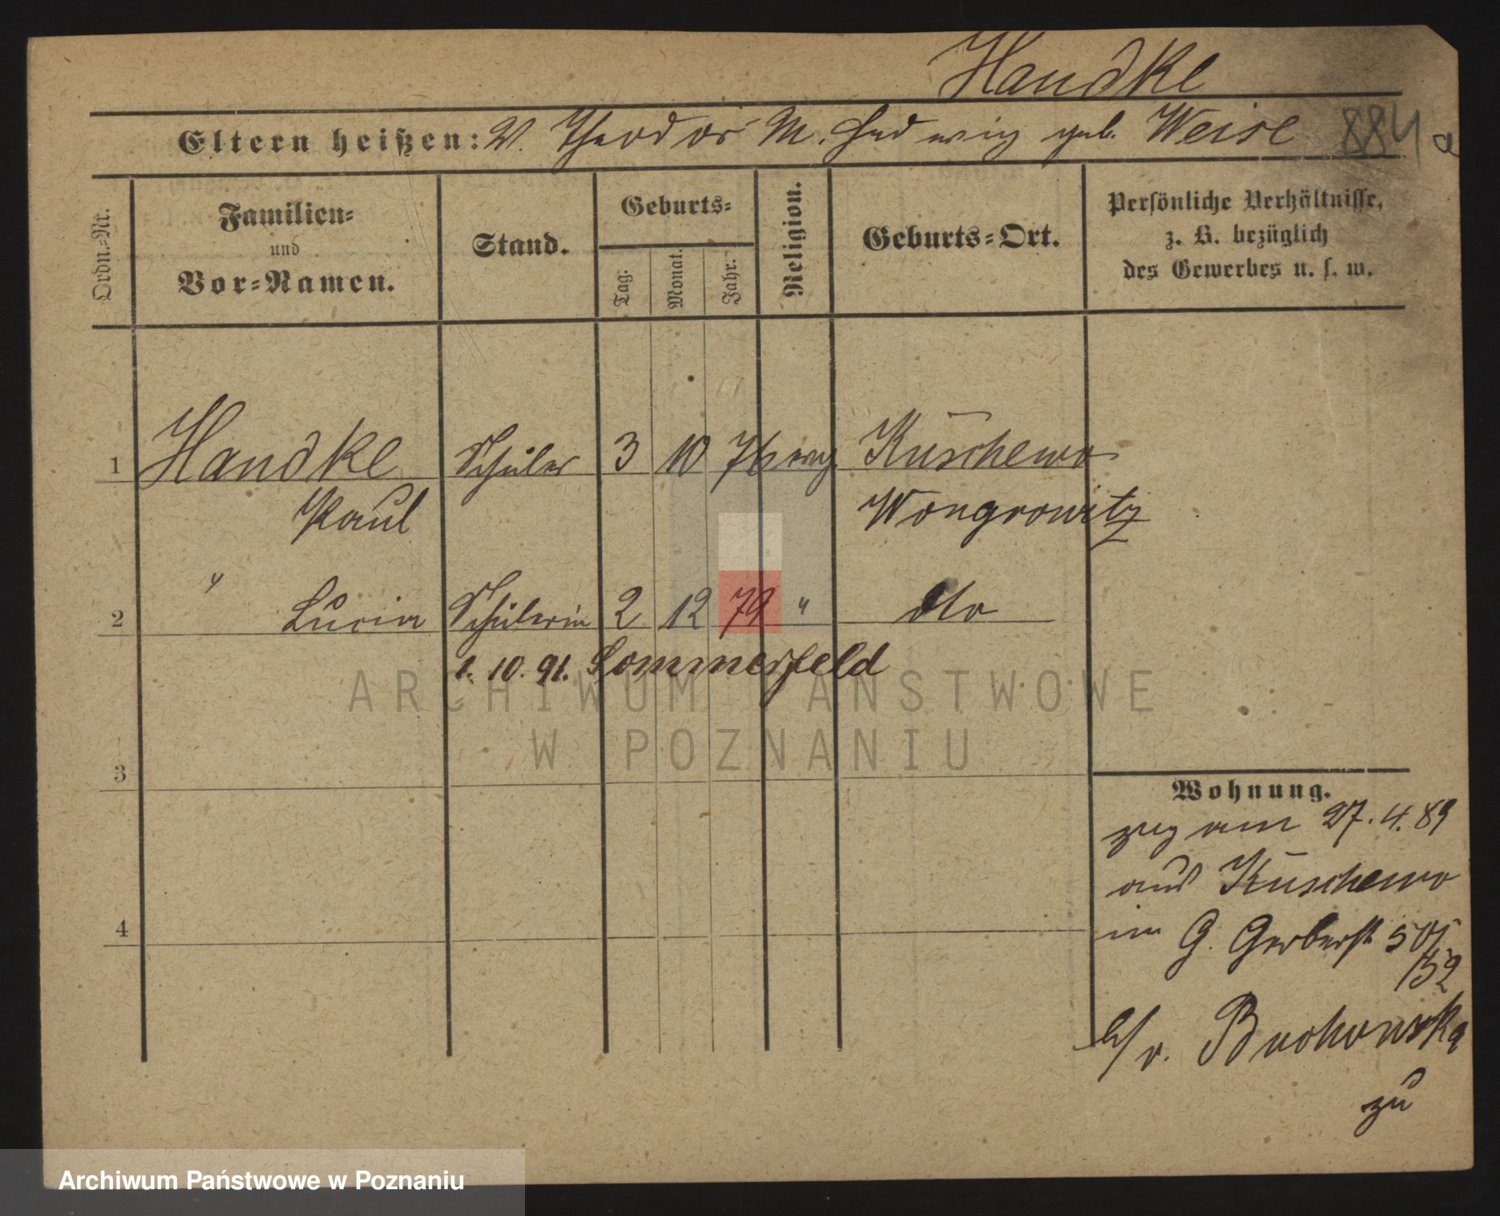 Handke
Eltern heißen: V. Theodor M. Hedwig geb. Weise 884 a
Ordn.-Nr.
Familien-
und
Vor-Namen.
Stand.
Geburts-
Tag. Monat. Jahr.
Religion.
Geburts-Ort.
Persönliche Verhältnisse,
z. B. bezüglich
des Gewerbes u. s. w.
1 Handke Schüler 3 10 76 evg Kuschewo
Paul Wongrowitz
2 " Lucia Schülerin 2 12 79 " dto
1. 10. 91. Sommerfeld
3
4
Wohnung.
zug am 27. 4. 89
aus Kuschewo
in G. Gerberst 50
152
b/v.
zu
ARCHIWUM PAŃSTWOWE
W POZNANIU
Archiwum Państwowe w Poznaniu